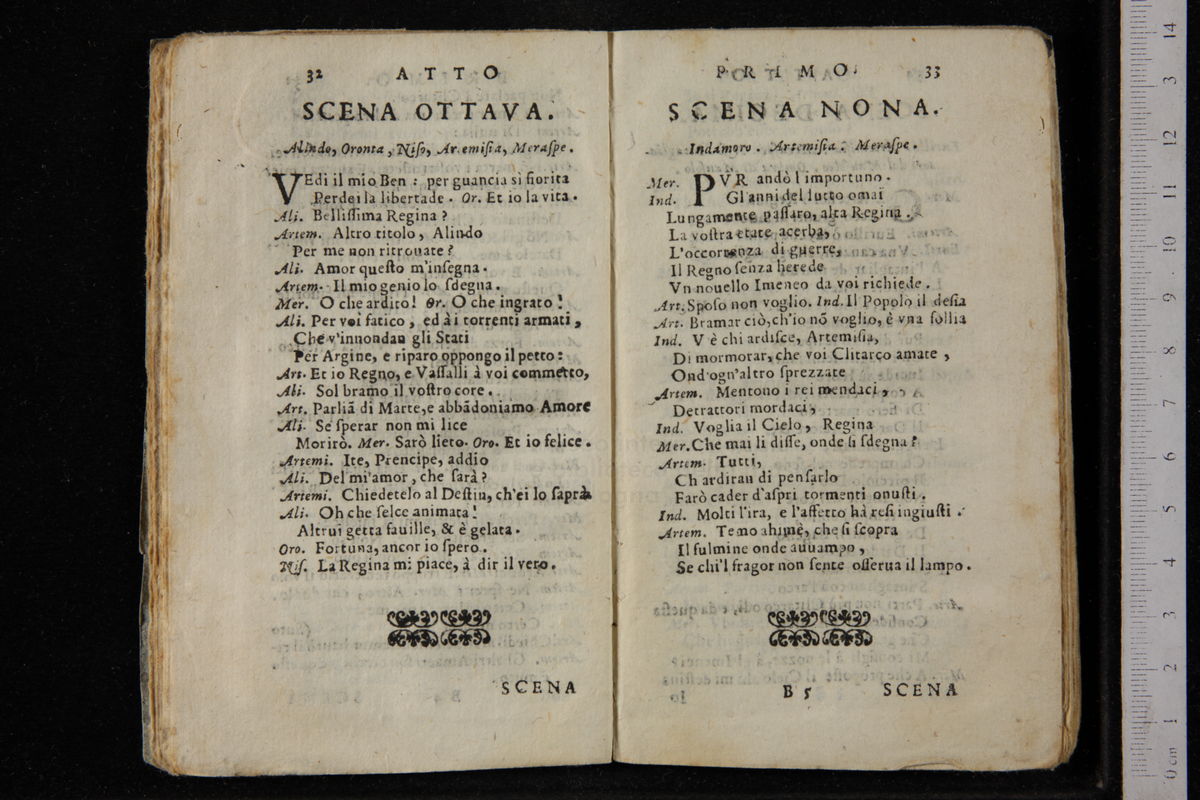 32 ATTO
SCENA OTTAVA.
Alindo, Oronta, Niso, Ar emisia, Meraspe.
VEdi il mio Ben: per guancia sì fiorita
Perdei la libertade. Or. Et io la vita.
Ali. Bellissima Regina?
Artem. Altro titolo, Alindo
Per me non ritrouate?
Ali. Amor questo m'insegna.
Artem. Il mio genio lo sdegna.
Mer. O che ardito! Or. O che ingrato!
Ali. Per voi fatico, ed à i torrenti armati,
Che v'innondan gli Stati
Per Argine, e riparo oppongo il petto:
Art. Et io Regno, e Vassalli à voi commetto,
Ali. Sol bramo il vostro core.
Art. Parliã di Marte, e abbãdoniamo Amore
Ali. Se sperar non mi lice
Morirò. Mer. Sarò lieto. Oro. Et io felice.
Artemi. Ite, Prencipe, addio
Ali. Del mi'amor, che sarà?
Artemi. Chiedetelo al Destin, ch'ei lo saprà
Ali. Oh che selce animata!
Altrui getta fauille, & è gelata.
Oro. Fortuna, ancor io spero.
Nis. La Regina mi piace, à dir il vero.
SCENA
PRIMO. 33
SCENA NONA.
Indamoro. Artemisia. Meraspe.
Mer. PVR andò l importuno.
Ind. Gl'anni del lutto omai
Lungamente passaro, alta Regina.
La vostra etate acerba,
L'occorrenza di guerre,
Il Regno senza herede
Vn nouello Imeneo da voi richiede.
Art. Sposo non voglio. Ind. Il Popolo il desia
Art. Bramar ciò, ch'io nõ voglio, è vna follia
Ind. V è chi ardisce, Artemisia,
Di mormorar, che voi Clitarco amate,
Ond'ogn'altro sprezzate
Artem. Mentono i rei mendaci,
Detrattori mordaci,
Ind. Voglia il Cielo, Regina
Mer. Che mai li disse, onde si sdegna?
Artem. Tutti,
Ch ardiran di pensarlo
Farò cader d'aspri tormenti onusti.
Ind. Molti l'ira, e l'affetto hà resi ingiusti.
Artem. Temo ahimè, che si scopra
Il fulmine onde auuampo,
Se chi'l fragor non sente osserua il lampo.
B 5 SCENA